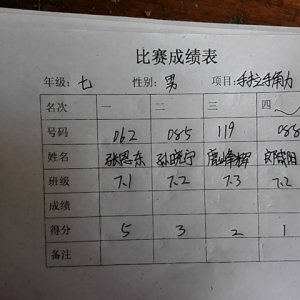 比赛成绩表
年级：七 性别：男 项目：
名次 一 二 三 四
号码 062 085 119 088
姓名 张恩东 孙晓宁
班级 7.1 7.2 7.3 7.2
成绩
得分 5 3 2 1
备注